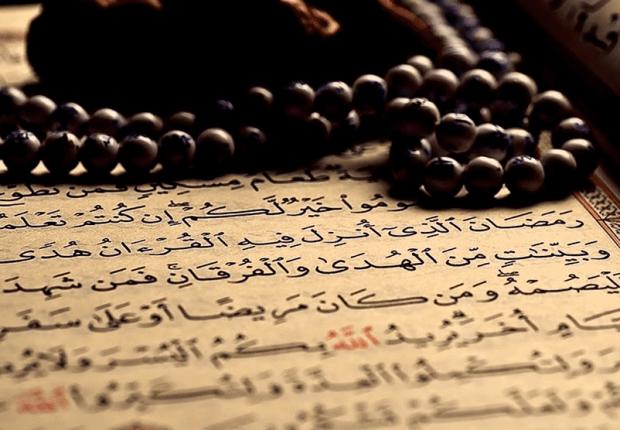 طَعَامُ مِسْكِينٍ فَمَن تَطَوَّ
ـومُوا۟ خَيْرٌ لَّكُمْ ۖ إِن كُنتُمْ تَعْلَمُـ
رَمَضَانَ ٱلَّذِىٓ أُنزِلَ فِيهِ ٱلْقُرْءَانُ هُدًى
وَبَيِّنَٰتٍ مِّنَ ٱلْهُدَىٰ وَٱلْفُرْقَانِ ۚ فَمَن شَهِدَ
ـلْيَصُمْهُ ۖ وَمَن كَانَ مَرِيضًا أَوْ عَلَىٰ سَفَرٍ
ـَّامٍ أُخَرَ ۗ يُرِيدُ ٱللَّهُ بِكُمُ ٱلْيُسْرَ وَلَا يُرِيـ
وَلِتُكْمِلُوا۟ ٱلْعِدَّةَ وَلِتُكَبِّرُوا۟ ٱللَّهَ
وَلَعَلَّكُمْ تَشْكُرُونَ